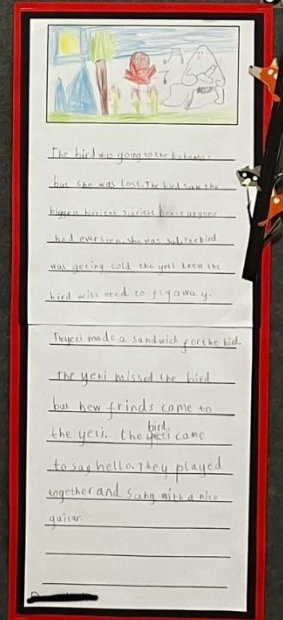 The bird was going to the bahamas.
but she was lost. The bird saw the
biggest hirriest scariest beast anyone
had ever seen. she was sad. The bird
was geting cold the yeti knew the
bird will need to fly away.
The yeti made a sandwich for the bid.
the yeti missed the bird
but new frinds came to
the yeti. the bird came
to say hello. They played
together and sang with a nice
guitar.